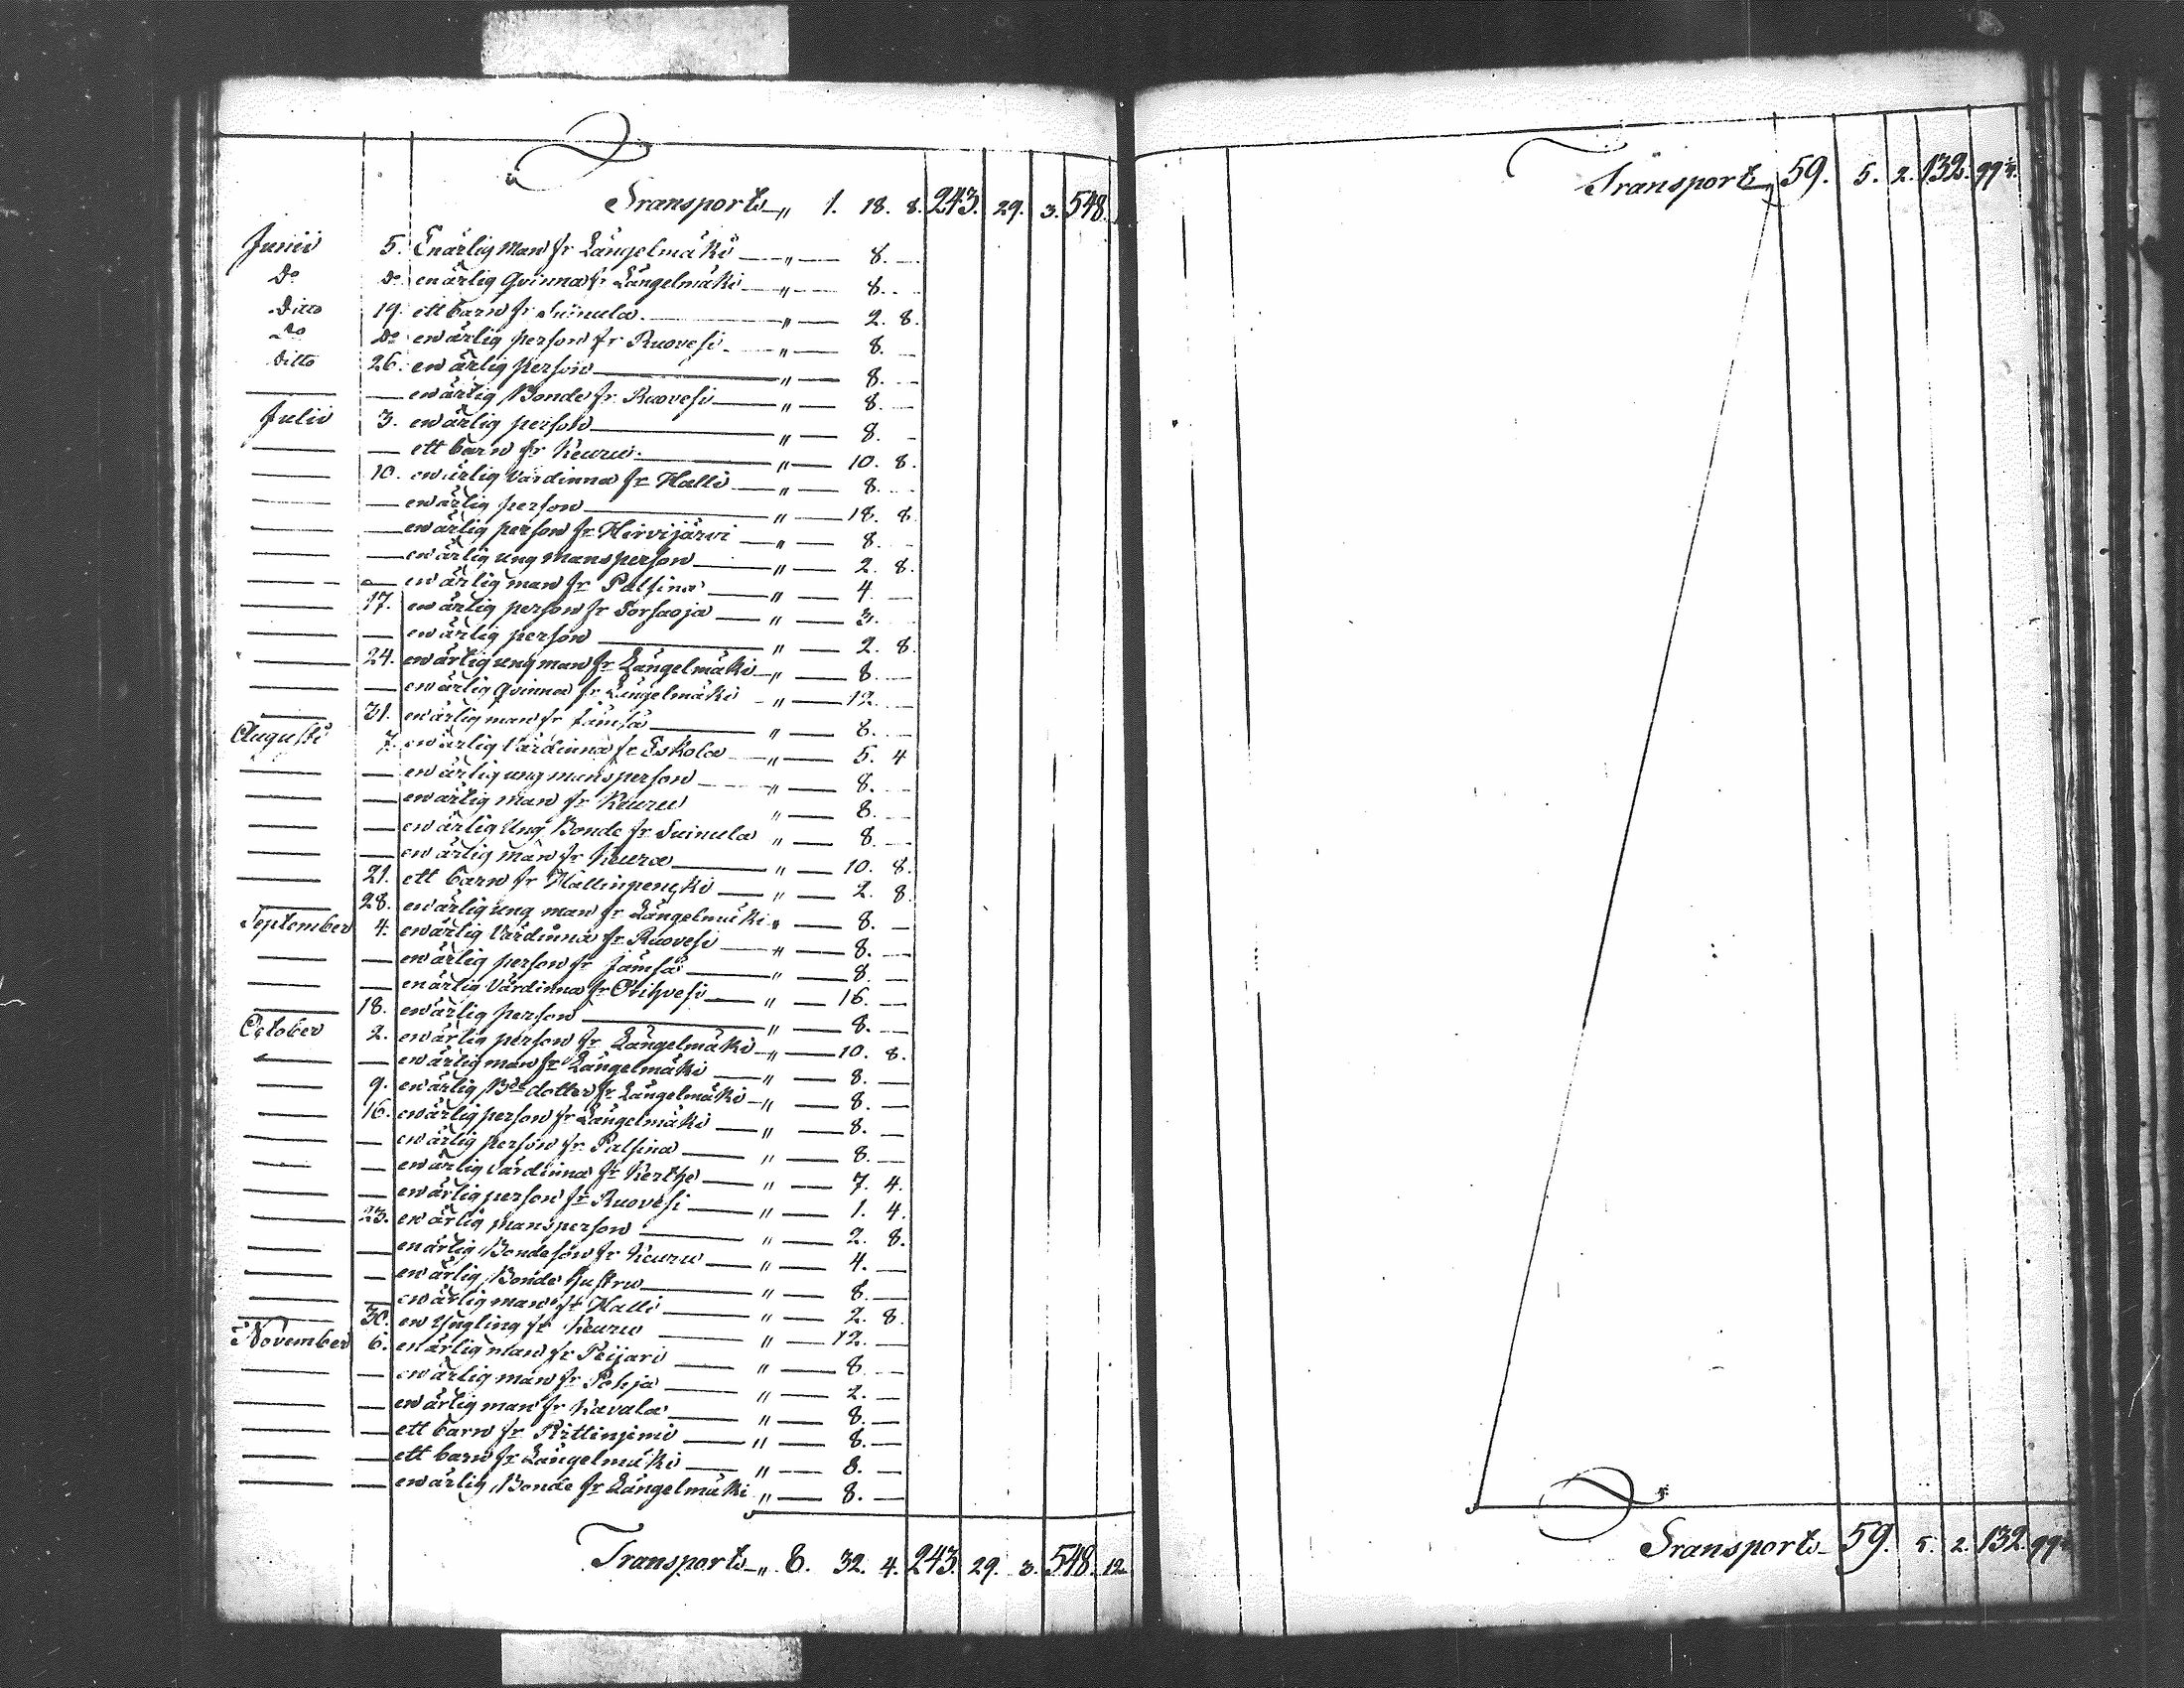 Transport „ 1. 18. 8. 243. 29. 3. 548.
Junii 5. En ärlig Man fr Längelmäki „ — 8. —
Do Do en ärlig Qvinna fr Längelmäki „ — 8. —
Ditto 19. ett barn fr Suinula „ — 2. 8.
Do Do en ärlig person fr Ruovesi „ — 8. —
Ditto 26. en ärlig person „ — 8. —
— — en ärlig Bonde fr Ruovesi „ — 8. —
Julii 3. en ärlig person „ — 8. —
— — ett barn fr Keuru „ — 10. 8.
— 10. en ärlig Värdinna fr Halli „ — 8. —
— — en ärlig person „ — 18. 8.
— — en ärlig person fr Hirvijärvi „ — 8. —
— — en ärlig ung mansperson „ — 2. 8.
— — en ärlig man fr Palsina „ — 4. —
— 17. en ärlig person fr Porsaoja „ — 3. —
— — en ärlig person „ — 2. 8.
— 24. en ärlig ung man fr Längelmäki „ — 8. —
— — en ärlig Qvinna fr Längelmäki „ — 12. —
— 31. en ärlig man fr Jämsä „ — 8. —
Augusti 7. en ärlig Värdinna fr Eskola „ — 5. 4
— — en ärlig ung mansperson „ — 8. —
— — en ärlig man fr Keuru „ — 8. —
— — en ärlig Ung Bonde fr Suinula „ — 8. —
— — en ärlig man fr Keuru „ — 10. 8.
— 21. ett barn fr Hallinpenki „ — 2. 8.
— 28. en ärlig ung man fr Längelmäki „ — 8. —
September 4. en ärlig Värdinna fr Ruovesi „ — 8. —
— — en ärlig person fr Jämsä „ — 8. —
— — en ärlig Värdinna fr Orihvesi „ — 16. —
— 18. en ärlig person „ — 8. —
October 2. en ärlig person fr Längelmäki „ — 10. 8.
— — en ärlig man fr Längelmäki „ — 8. —
— 9. en ärlig Bde dotter fr Längelmäki „ — 8. —
— 16. en ärlig person fr Längelmäki „ — 8. —
— — en ärlig person fr Palsina „ — 8. —
— — en ärlig värdinna fr „ — 7. 4.
— — en ärlig person fr Ruovesi „ — 1. 4.
— 23. en ärlig mansperson „ — 2. 8.
— — en ärlig Bondeson fr Keuru „ — 4. —
— — en ärlig Bonde hustru „ — 8. —
— — en ärlig man fr Halli „ — 2. 8.
— 30. en Yngling fr Keuru „ — 12. —
November 6. en ärlig man fr Peijari „ — 8. —
— — en ärlig man fr Pohja „ — 2. —
— — en ärlig man fr Kavala „ — 8. —
— — ett barn fr „ — 8. —
— — ett barn fr Längelmäki „ — 8. —
— — en ärlig Bonde fr Längelmäki „ — 8. —
Transport „ 8. 32. 4. 243. 29. 3. 548. 12
Transport 59. 5. 2. 132. 99
Transport 59. 5. 2. 132. 99